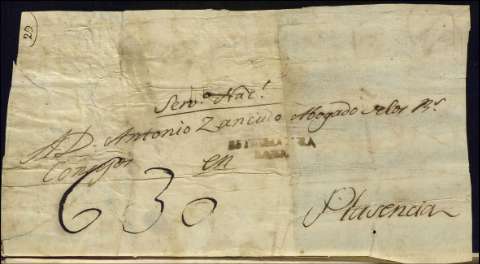 20
Serv.º Nac.l
A D. Antonio Zancudo Abogado de los R.s
Consejos en
ESTREMADURA
BAXA
630
Plasencia